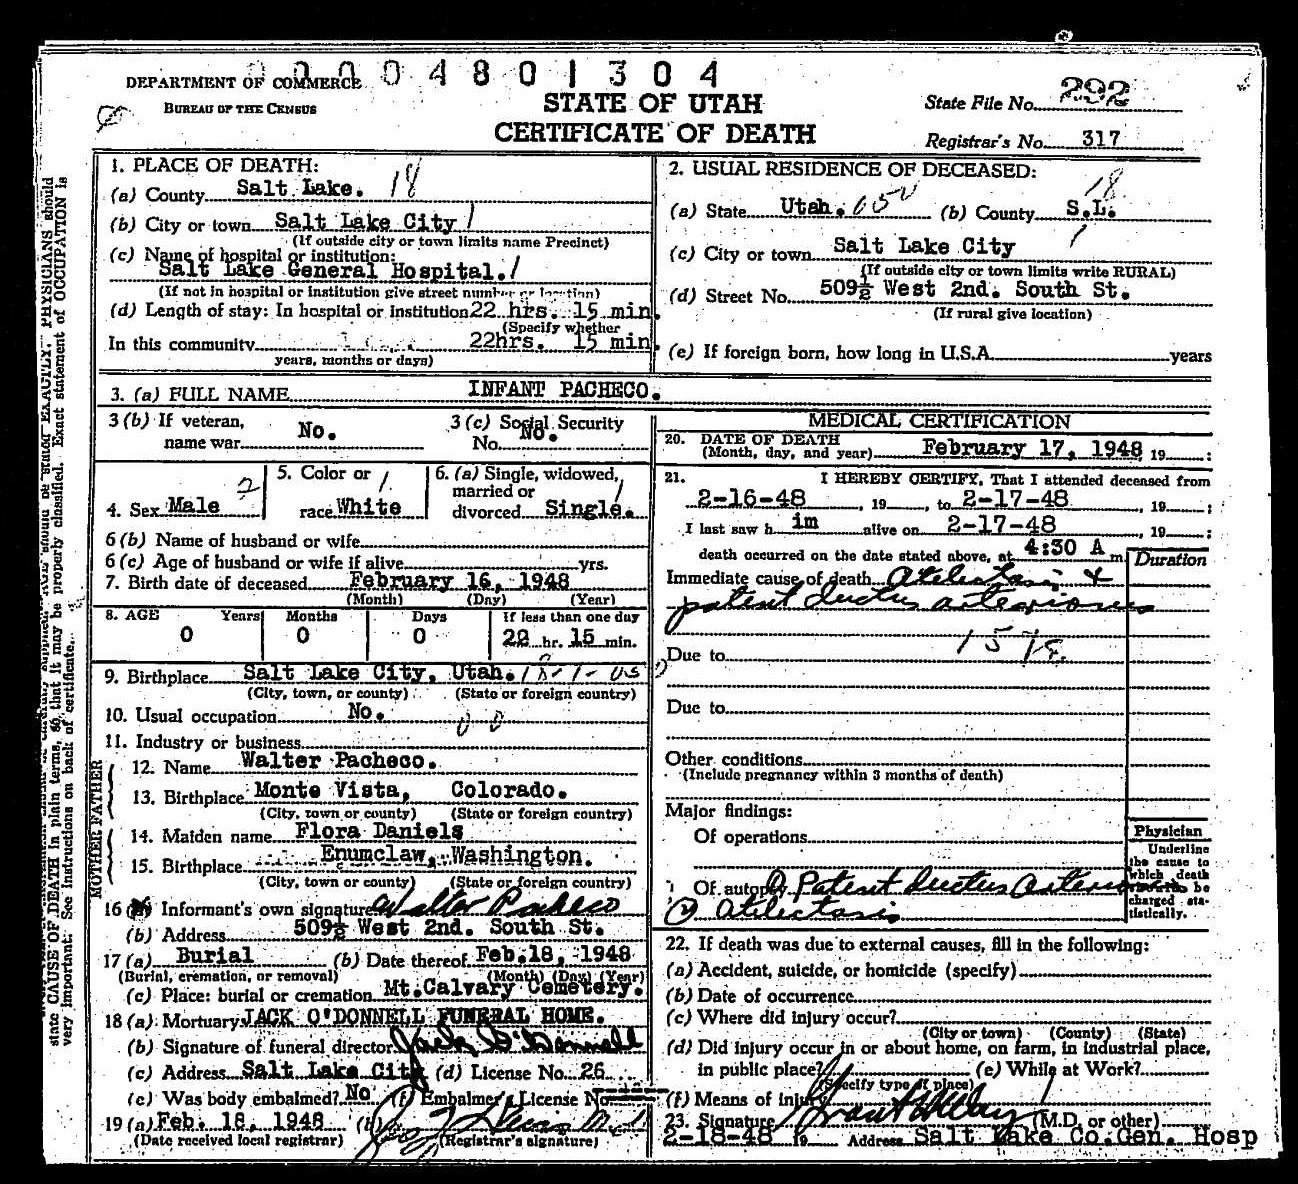 00004801304
DEPARTMENT OF COMMERCE
BUREAU OF THE CENSUS
STATE OF UTAH
CERTIFICATE OF DEATH
State File No. 292
Registrar's No. 317
state CAUSE OF DEATH in plain terms, so that it may be properly classified. Exact statement of OCCUPATION is
very important. See instructions on back of certificate.
1. PLACE OF DEATH:
(a) County Salt Lake. 18
(b) City or town Salt Lake City 1
(If outside city or town limits name Precinct)
(c) Name of hospital or institution:
Salt Lake General Hospital. 1
(If not in hospital or institution give street number or location)
(d) Length of stay: In hospital or institution 22 hrs. 15 min.
(Specify whether
In this community 22hrs. 15 min.
years, months or days)
2. USUAL RESIDENCE OF DECEASED:
18
(a) State Utah. 050 (b) County S.L.
(c) City or town Salt Lake City 1
(If outside city or town limits write RURAL)
(d) Street No. 509½ West 2nd. South St.
(If rural give location)
(e) If foreign born, how long in U.S.A. years
3. (a) FULL NAME INFANT PACHECO.
3 (b) If veteran, name war No.
3 (c) Social Security No. No.
4. Sex Male 2
5. Color or race White 1
6. (a) Single, widowed, married or divorced Single. 1
6 (b) Name of husband or wife
6 (c) Age of husband or wife if alive yrs.
7. Birth date of deceased February 16, 1948
(Month) (Day) (Year)
8. AGE Years Months Days If less than one day
0 0 0 22 hr. 15 min.
9. Birthplace Salt Lake City, Utah. 18-1-05 0
(City, town, or county) (State or foreign country)
10. Usual occupation No. 0 0
11. Industry or business
FATHER
12. Name Walter Pacheco.
13. Birthplace Monte Vista, Colorado.
(City, town or county) (State or foreign country)
MOTHER
14. Maiden name Flora Daniels
15. Birthplace Enumclaw, Washington.
(City, town or county) (State or foreign country)
16 (a) Informant's own signature Walter Pacheco
(b) Address 509½ West 2nd. South St.
17 (a) Burial (b) Date thereof Feb.18, 1948
(Burial, cremation, or removal) (Month) (Day) (Year)
(c) Place: burial or cremation Mt.Calvary Cemetery.
18 (a) Mortuary JACK O'DONNELL FUNERAL HOME.
(b) Signature of funeral director Jack O'Donnell
(c) Address Salt Lake City (d) License No. 26
(e) Was body embalmed? No (f) Embalmer's License No.
19 (a) Feb. 18, 1948 (b)
(Date received local registrar) (Registrar's signature)
MEDICAL CERTIFICATION
20. DATE OF DEATH
(Month, day, and year) February 17, 1948, 19 :
21. I HEREBY CERTIFY, That I attended deceased from
2-16-48, 19 , to 2-17-48, 19 ;
I last saw h im alive on 2-17-48, 19 ;
death occurred on the date stated above, at 4:30 A m.
Duration
Immediate cause of death Atelectasis &
patent ductus arteriosus
157
Due to
Due to
Other conditions
(Include pregnancy within 3 months of death)
Major findings:
Of operations
Of autopsy 1) Patent ductus arteriosus
2) Atelectasis
Physician
Underline
the cause to
which death
should be
charged sta-
tistically.
22. If death was due to external causes, fill in the following:
(a) Accident, suicide, or homicide (specify)
(b) Date of occurrence
(c) Where did injury occur?
(City or town) (County) (State)
(d) Did injury occur in or about home, on farm, in industrial place,
in public place? (e) While at Work?
(Specify type of place)
(f) Means of injury
23. Signature (M.D. or other)
2-18-48 19 Address Salt Lake Co.Gen. Hosp